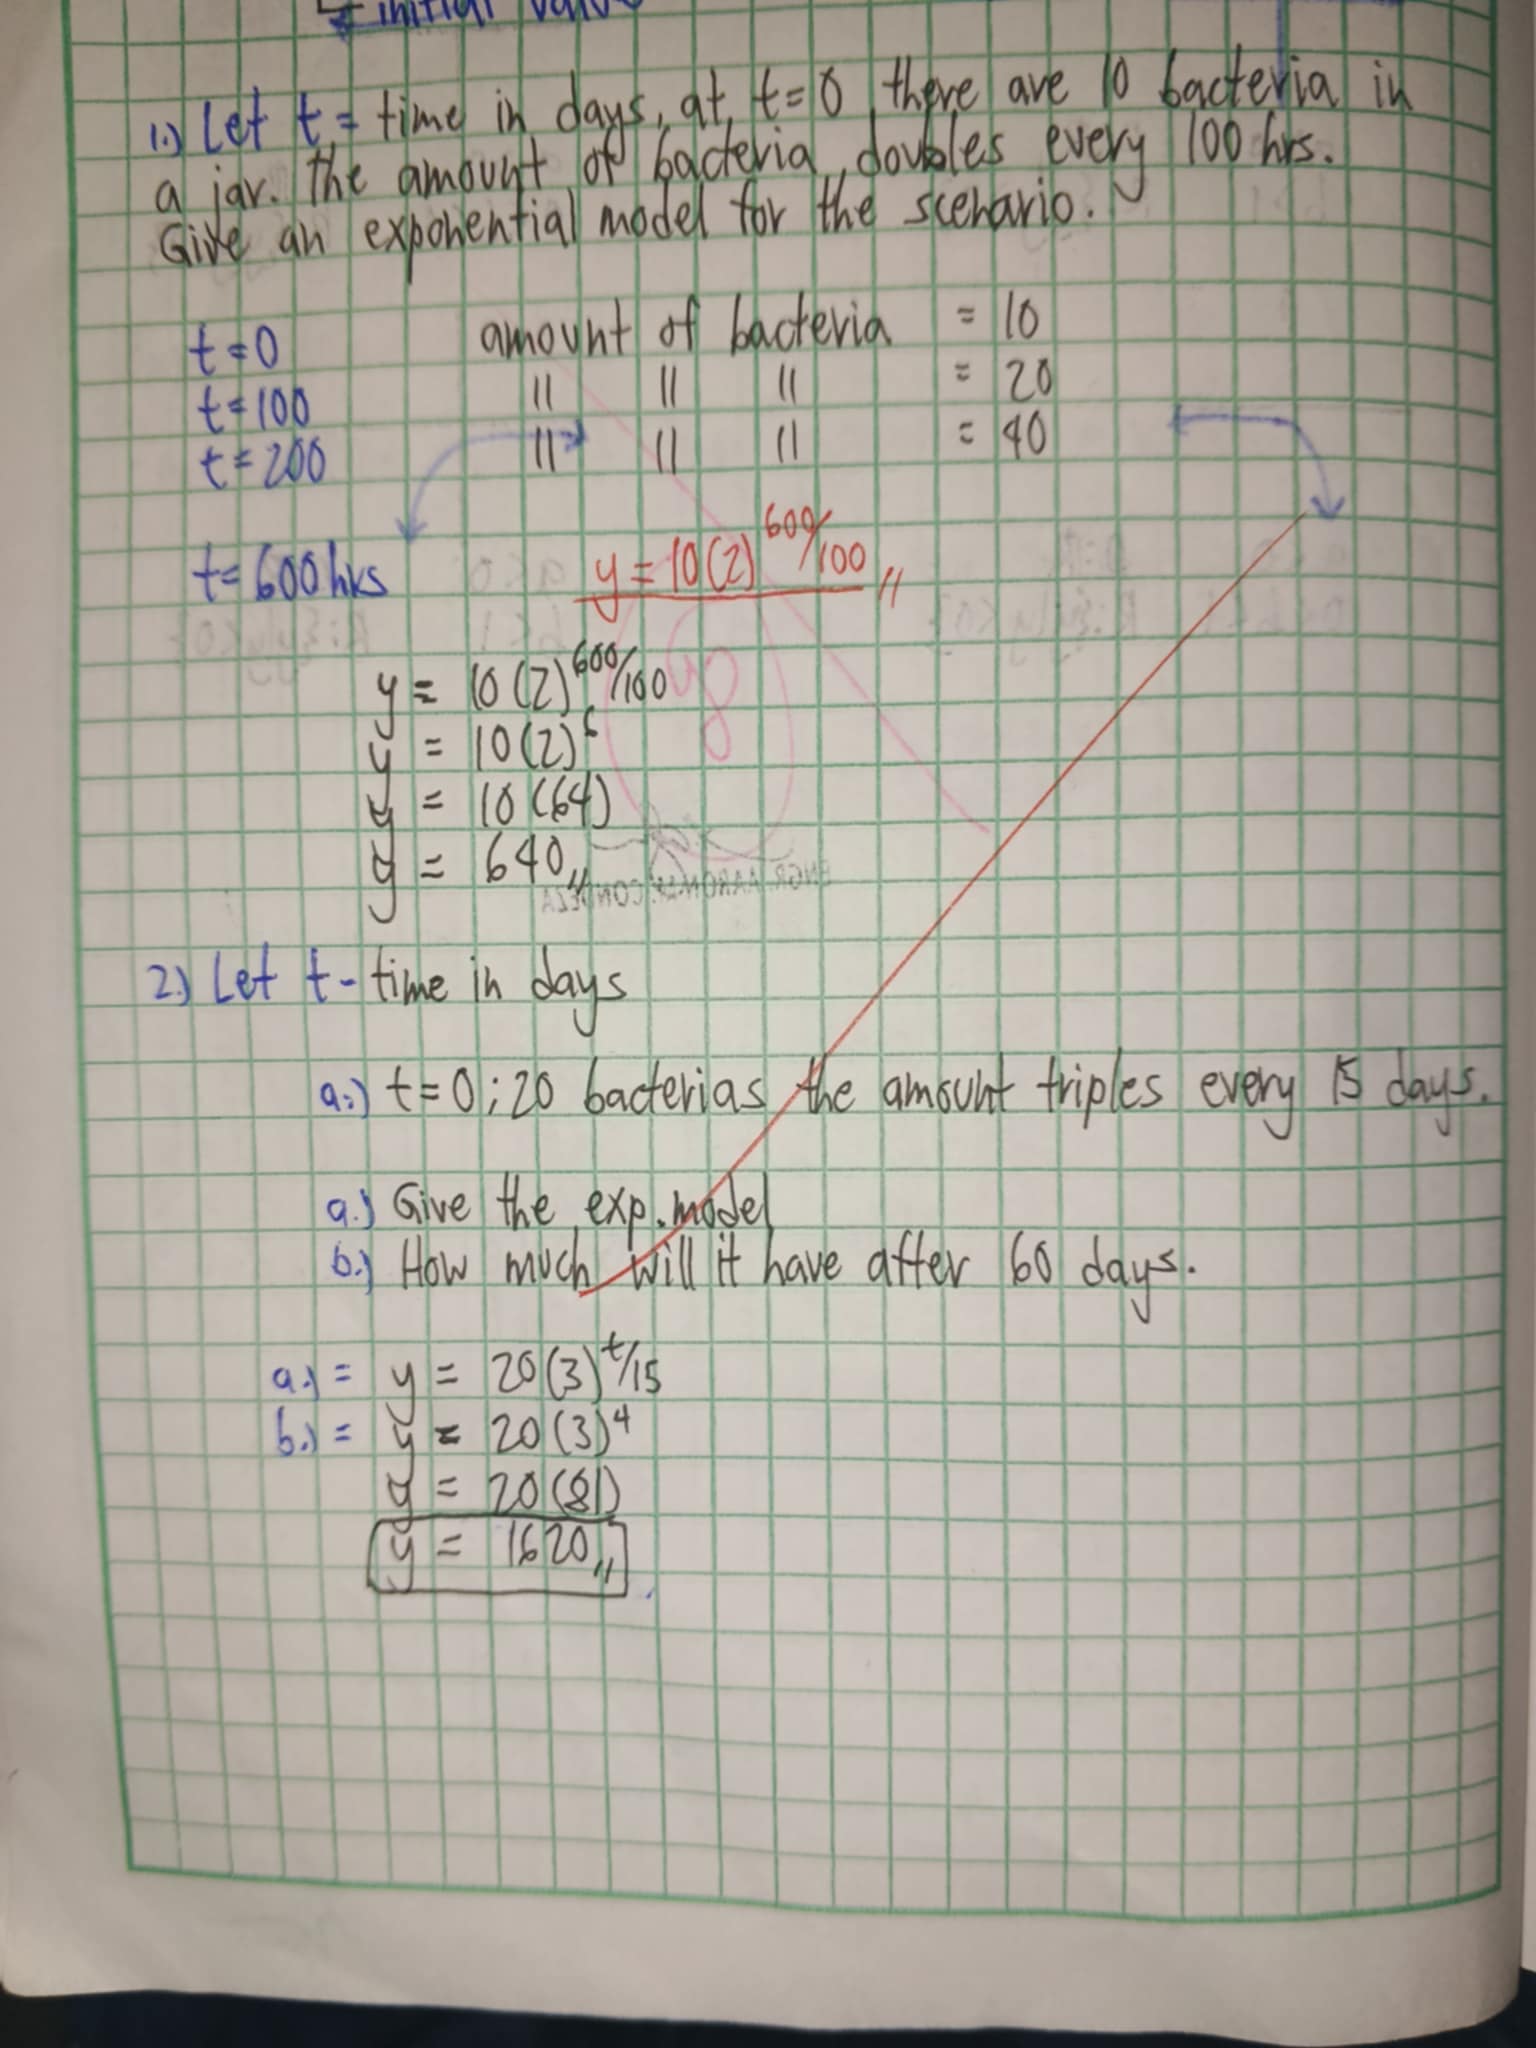 initial value
1.) Let t = time in days, at t=0 there are 10 bacteria in
a jar. The amount of bacteria doubles every 100 hrs.
Give an exponential model for the scenario.
t=0 amount of bacteria = 10
t=100 " " " = 20
t=200 " " " = 40
t=600hrs y=10(2)^600/100 //
y = 10(2)^600/100
y = 10(2)^6
y = 10(64)
y = 640 //
2.) Let t- time in days
a.) t=0; 20 bacterias the amount triples every 15 days.
a.) Give the exp. model
b.) How much will it have after 60 days.
a.) = y = 20(3)^t/15
b.) = y = 20(3)^4
y = 20(81)
y = 1620 //